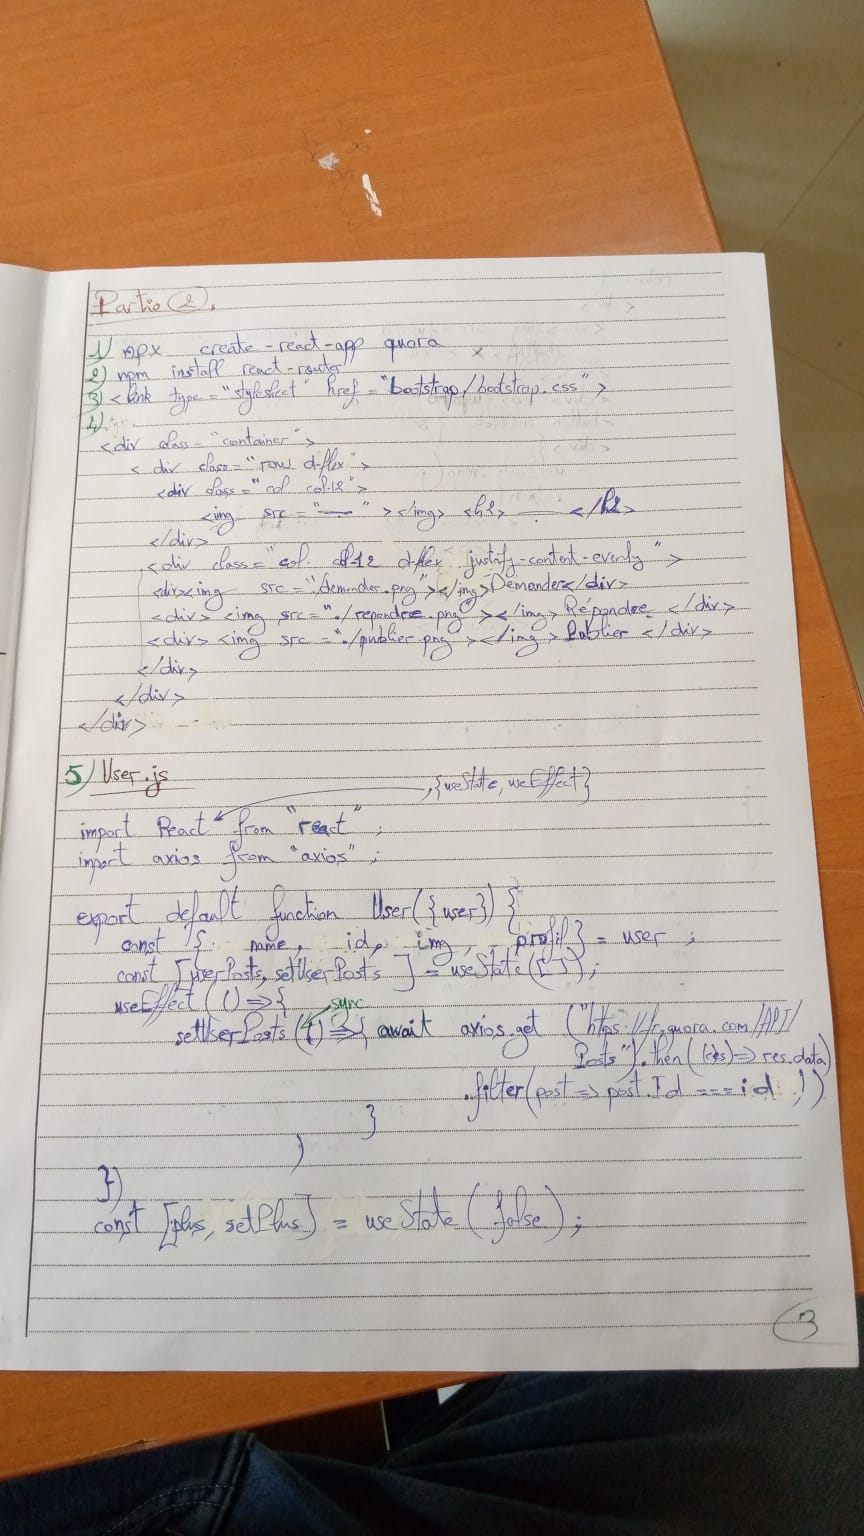 Partie 2.
1) npx create-react-app quora x
2) npm install react-router
3) <link type="stylesheet" href="bootstrap/bootstrap.css">
4)
<div class="container">
< div class="row d-flex">
<div class="col col-12">
<img src="—"></img> <h2> </h2>
</div>
<div class="col. col-12 d-flex justify-content-evenly">
<div><img src="./demander.png"></img>Demander</div>
<div> <img src="./repondre.png"></img> Répondre </div>
<div> <img src="./publier.png"></img> Publier </div>
</div>
</div>
</div>
5) User.js
,{useState, useEffect}
import React from "react" ;
import axios from "axios" ;
export default function User({user}) {
const { name, id, img, profil} = user ;
const [userPosts, setUserPosts ] = useState([]);
useEffect(()=>{
sync
setUserPosts(()=>{ await axios.get ("https://fr.quora.com/API/
Posts").then((res)=> res.data)
.filter(post=> post.Id === id ))
}
)
})
const [plus, setPlus] = useState(false);
3